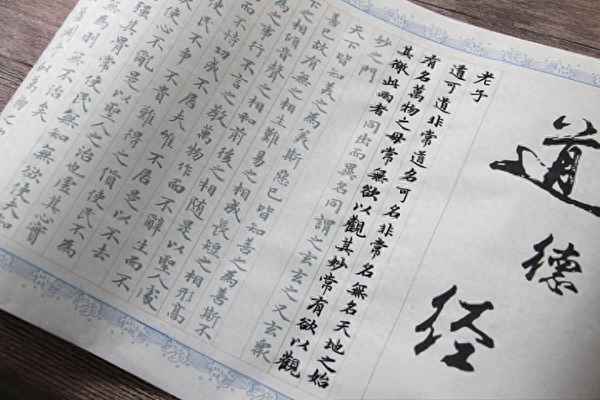 道德经
老子
道可道非常道名可名非常名無名天地之始
有名萬物之母常無欲以觀其妙常有欲以觀
其徼此兩者同出而異名同謂之玄玄之又玄眾
妙之門
天下皆知美之為美斯惡已皆知善之為善斯不
善已故有無之相生難易之相成長短之相形高
下之相傾音聲之相和前後之相隨是以聖人處
為之事行不言之教萬物作而不辭生而不
而不恃功成不居夫唯不居是以不去
使民不爭不貴難得之貨使民不為
使心不亂是以聖人之治也虛其心實
強其骨常使民無知無欲使夫知
為則無不治矣
萬物之